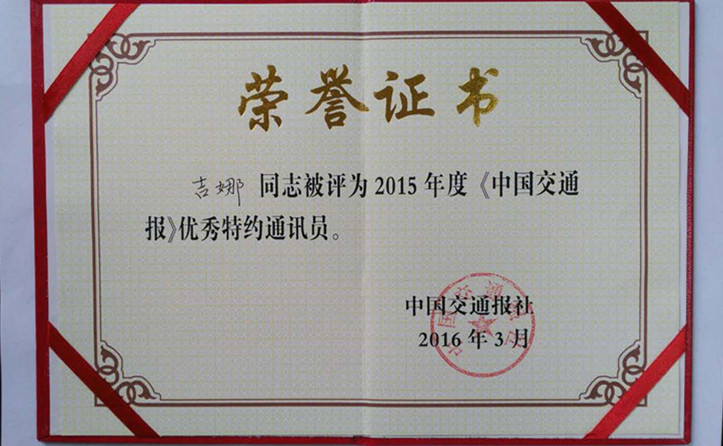 荣誉证书
吉娜 同志被评为2015年度《中国交通
报》优秀特约通讯员。
中国交通报社
2016年3月